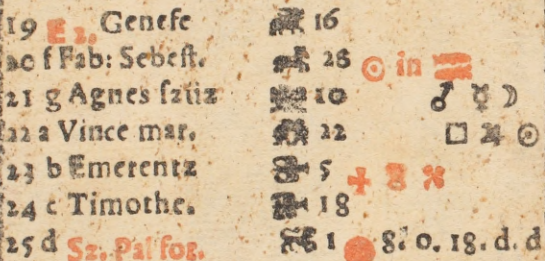 19 E 2. Genese 16
20 f Fab: Sebest. 28 ☉ in ♒
21 g Agnes szüz 10 ♂ ☿ ☽
22 a Vince mar. 22 □ ♃ ☉
23 b Emerentz 5
24 c Timothe. 18
25 d Sz. Pal fog. 1 8. o. 18. d. d